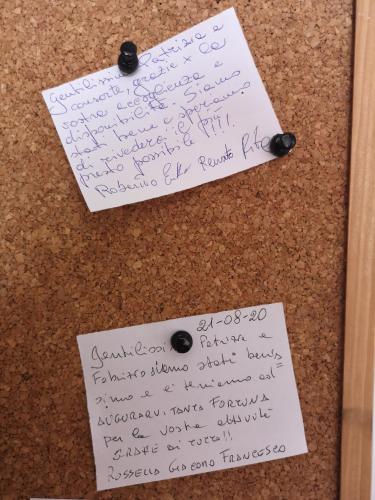 Gentilissi Patrizia e
consorte, grazie x la
vostra accoglienza e
disponibilità. Siamo
stati bene e speriamo
di rivederci il più
presto possibile !!!!
Roberto Erika Renato Rita
21-08-20
Gentilissi Patrizia e
Fabrizio siamo stati benis
simo e ci teniamo ad=
AUGURARVI TANTA FORTUNA
per la vostra attività
GRAZIE DI TUTTO!!
ROSSELLA GIACOMO FRANCESCO